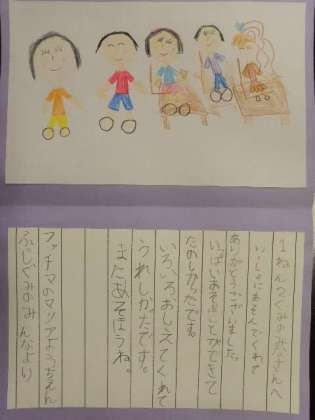 1ねん2くみのみなさんへ
いっしょにあそんでくれて
ありがとうございました。
いっぱいあそぶことができて
たのしかったです。
いろいろおしえてくれて
うれしかったです。
またあそぼうね。
ファチマのマリアようちえん
ふじぐみのみんなより